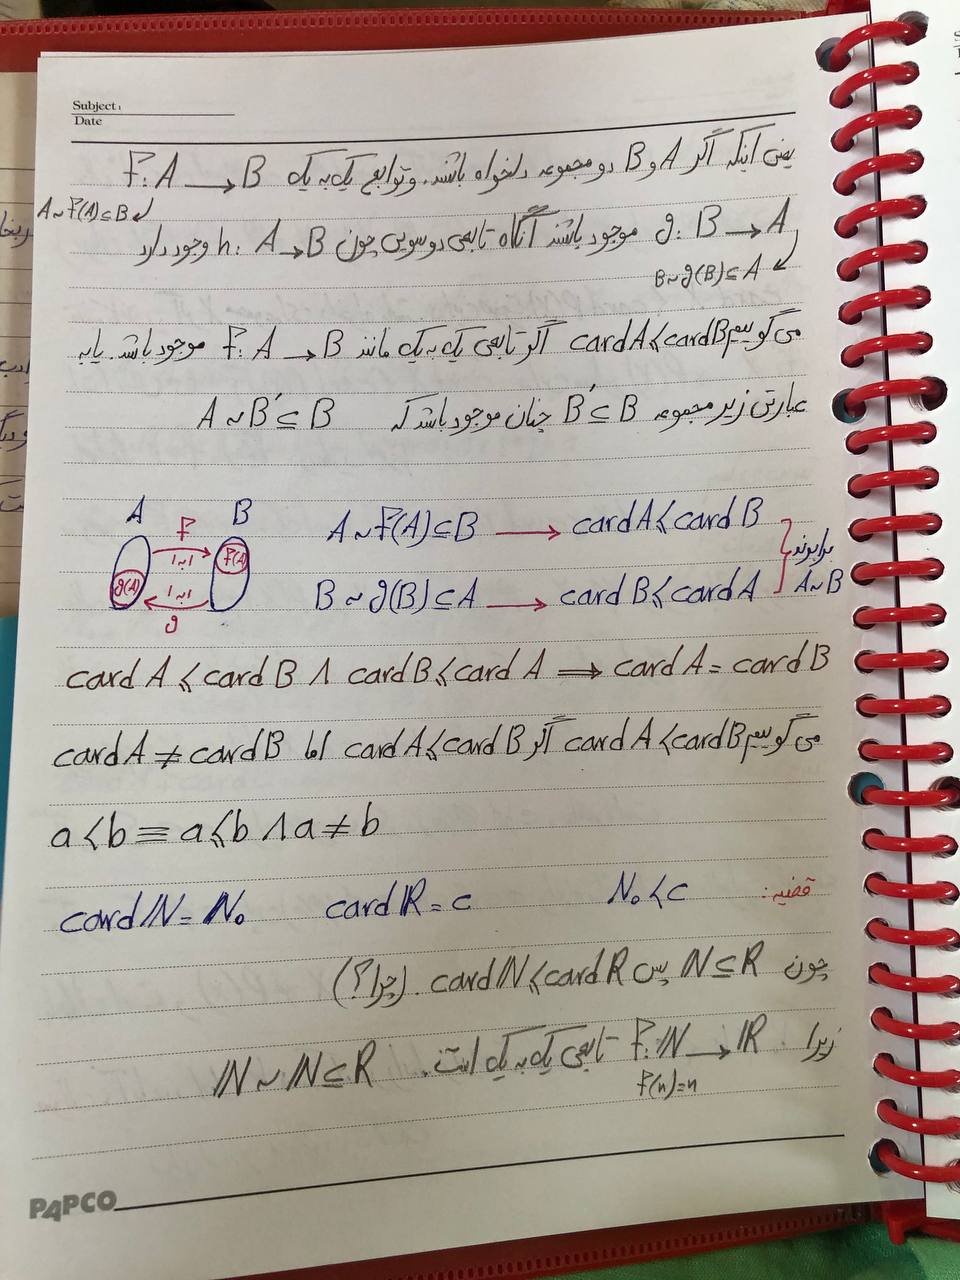 Subject:
Date
یعنی اینکه اگر A و B دو مجموعه دلخواه باشند. و توابع یک به یک F: A → B
A ~ F(A) ⊆ B
g: B → A موجود باشند آنگاه تابعی دوسویی چون h: A → B وجود دارد
B ~ g(B) ⊆ A
می گوییم card A ⩽ card B اگر تابعی یک به یک مانند F: A → B موجود باشد. یا به
عبارتی زیر مجموعه B′ ⊆ B چنان موجود باشد که A ~ B′ ⊆ B
A B
F
۱~۱
F(A)
g(A)
۱~۱
g
A ~ F(A) ⊆ B → card A ⩽ card B
B ~ g(B) ⊆ A → card B ⩽ card A
برابرند
A ~ B
card A ⩽ card B ∧ card B ⩽ card A ⟹ card A = card B
می گوییم card A < card B اگر card A ⩽ card B اما card A ≠ card B
a < b ≡ a ⩽ b ∧ a ≠ b
قضیه: ℵ₀ < c card ℝ = c card ℕ = ℵ₀
چون ℕ ⊆ ℝ پس card ℕ ⩽ card ℝ. (چرا؟)
زیرا F: ℕ → ℝ تابعی یک به یک است. ℕ ~ ℕ ⊆ ℝ
F(n) = n
PAPCO